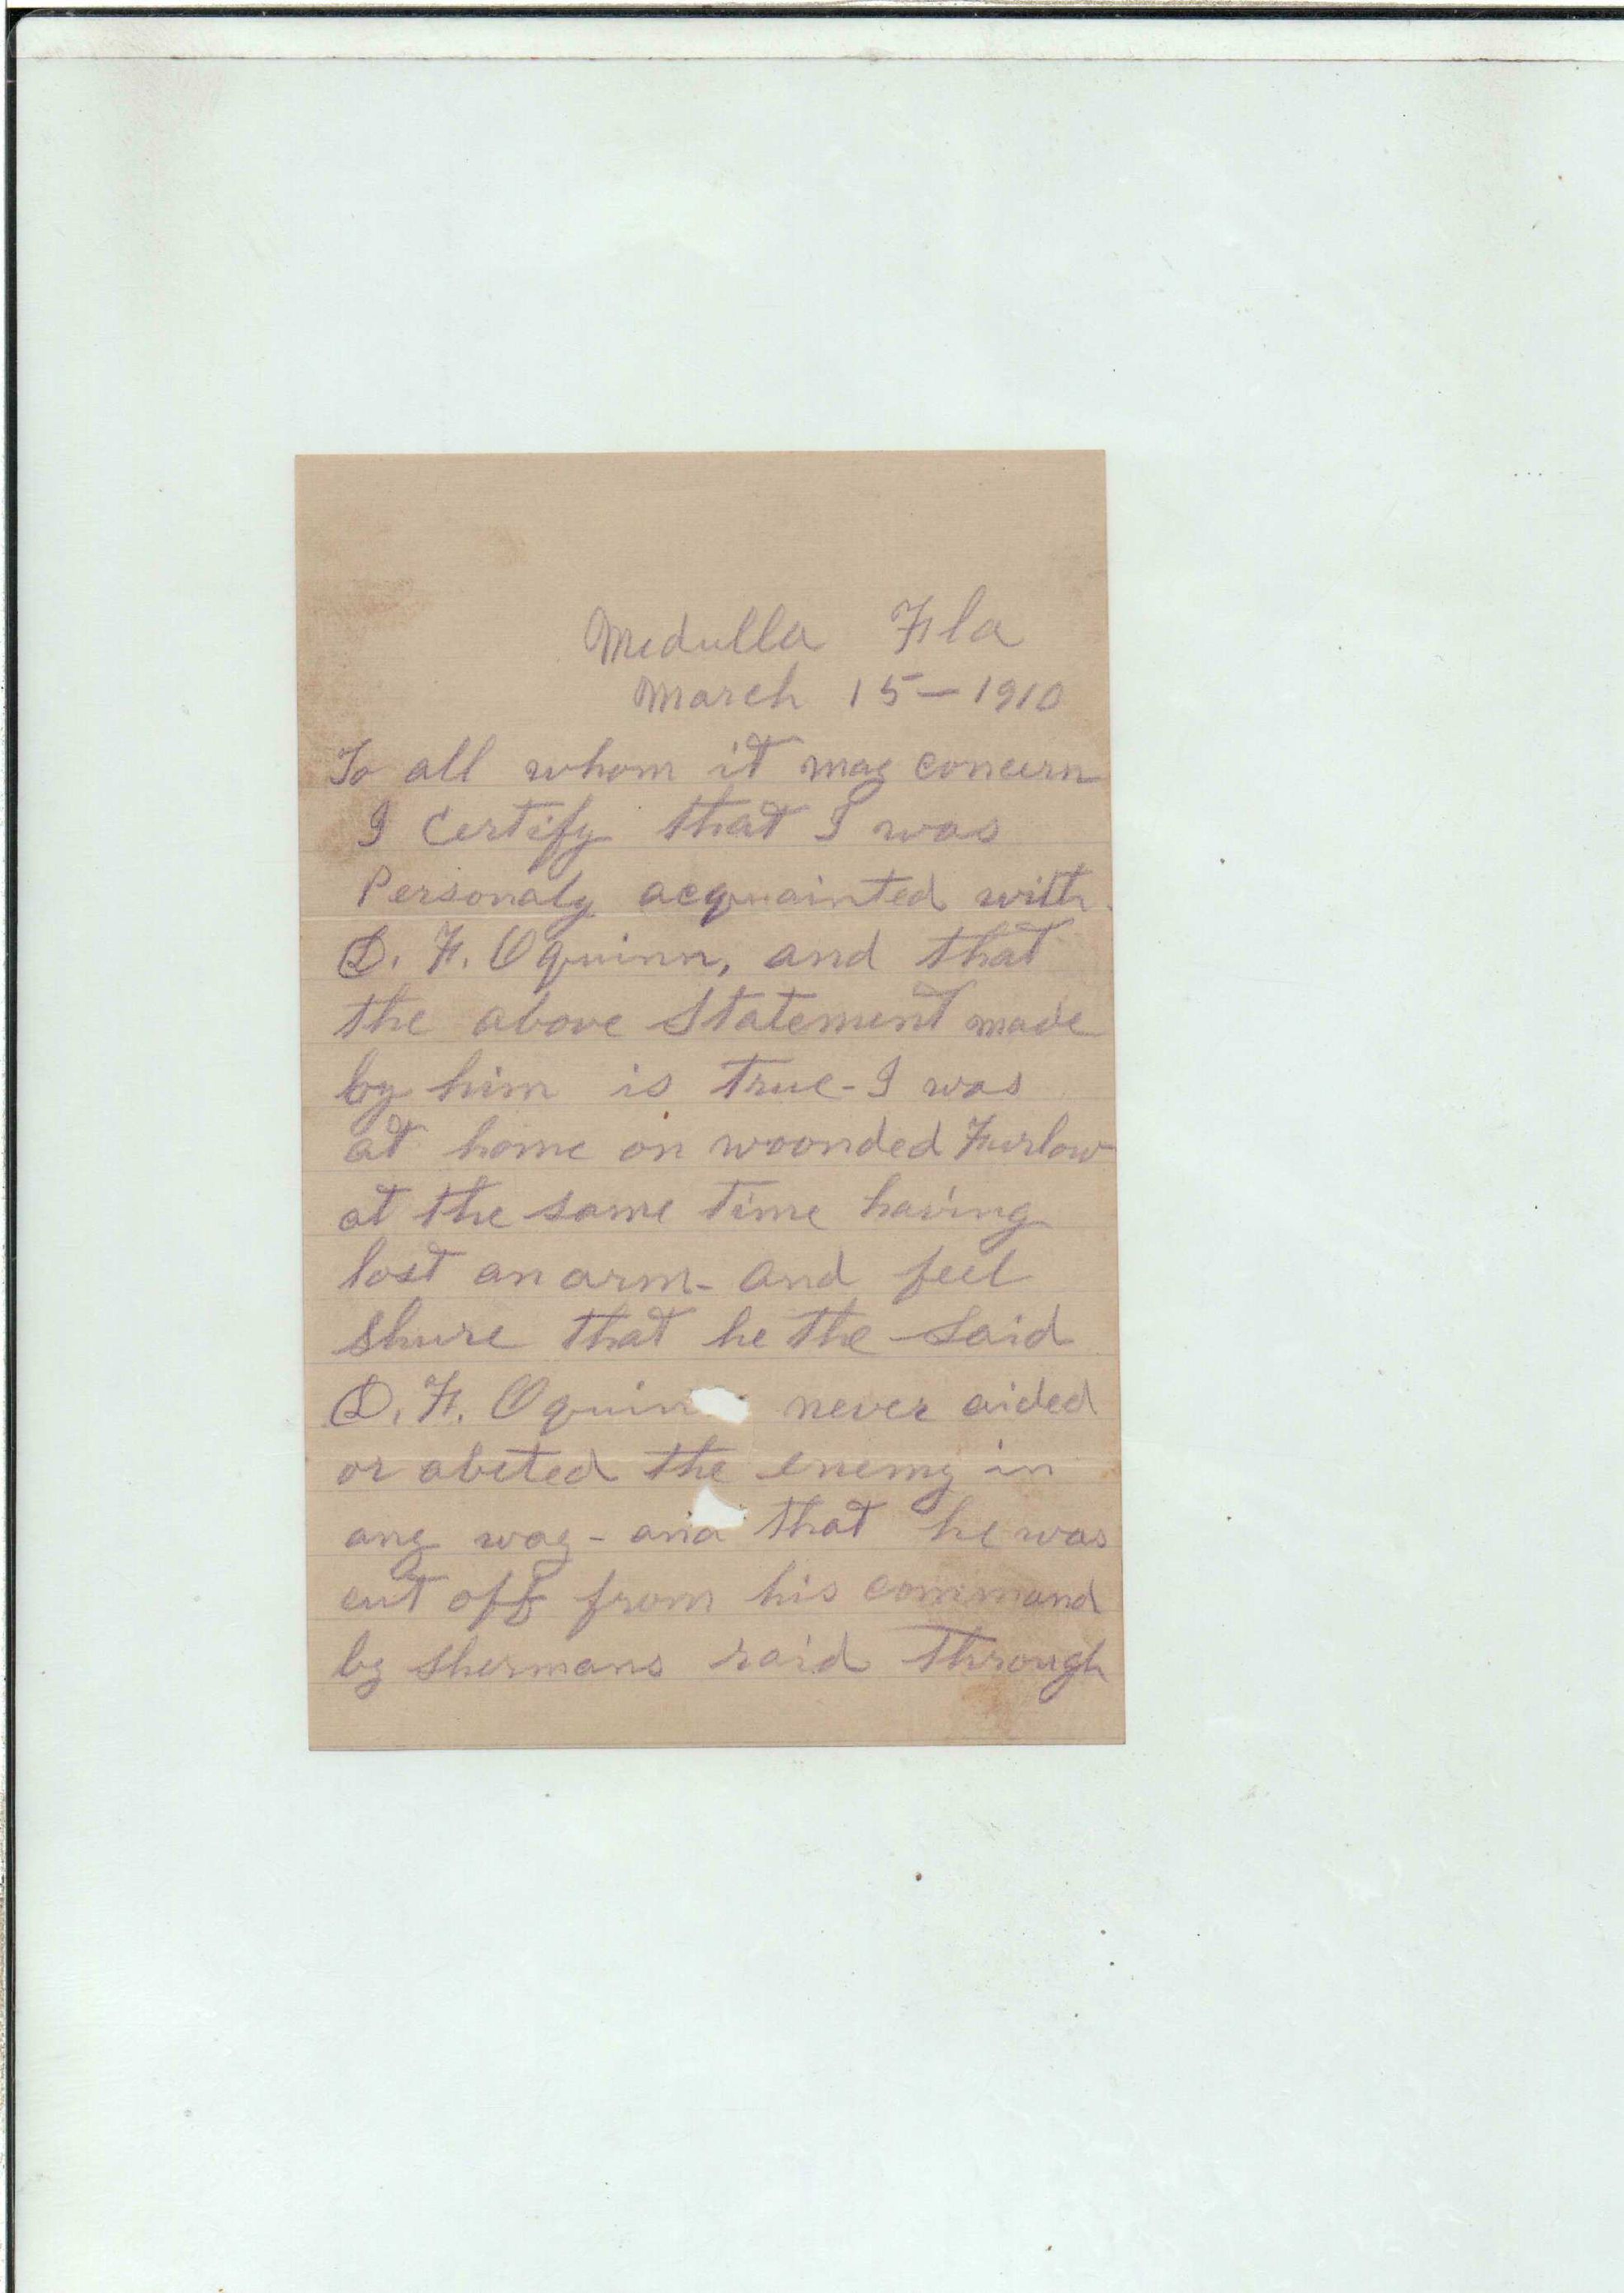 Medulla Fla
March 15-1910
To all whom it may concern
I Certify that I was
Personaly acquainted with
D. F. Oquinn, and that
the above Statement made
by him is true - I was
at home on woonded Furlow
at the same time having
lost an arm - and feel
shure that he the said
D. F. Oquin never aided
or abeted the enemy in
any way - and that he was
cut off from his command
by shermans raid through